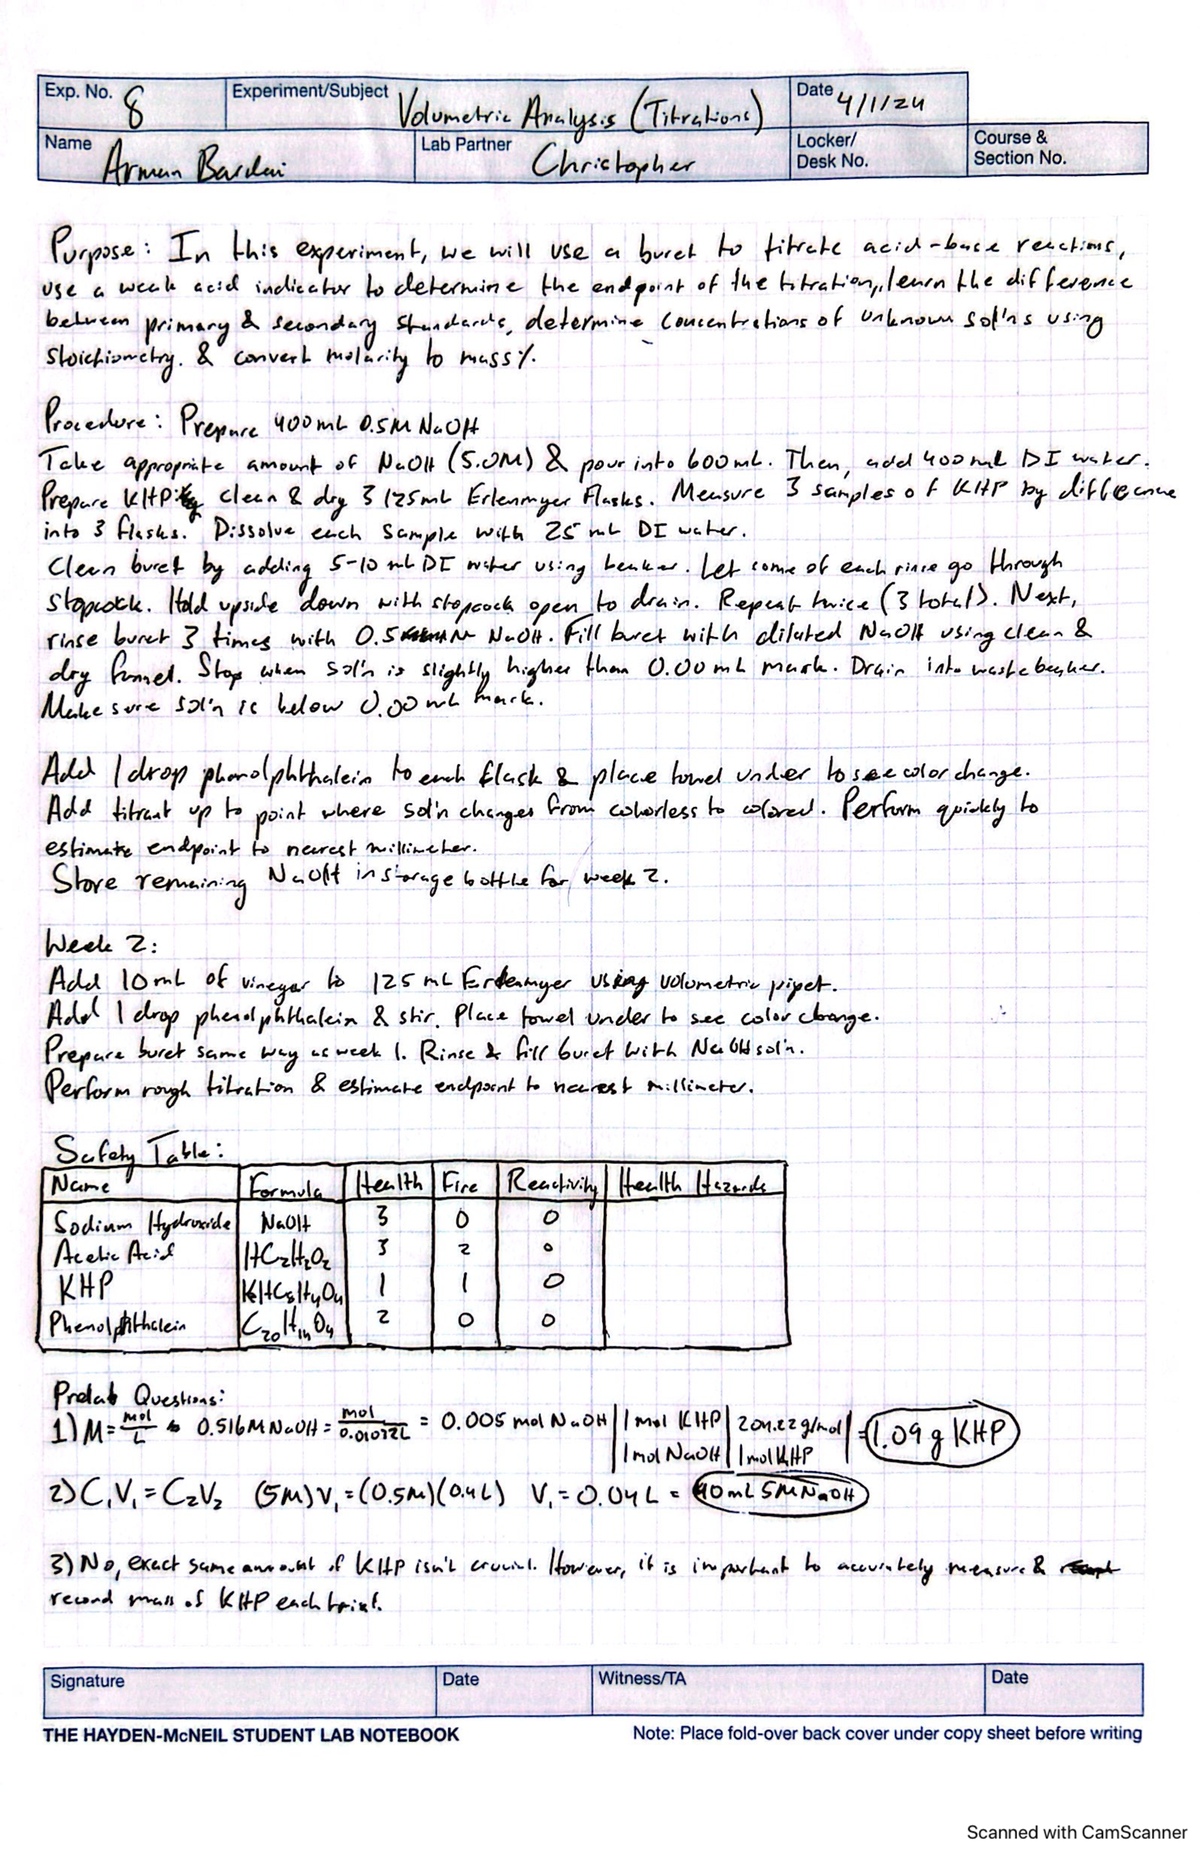 Exp. No. 8
Experiment/Subject Volumetric Analysis (Titrations)
Date 4/1/24
Name Arman Bardai
Lab Partner Christopher
Locker/
Desk No.
Course &
Section No.
Purpose: In this experiment, we will use a buret to titrate acid-base reactions,
use a weak acid indicator to determine the endpoint of the titration, learn the difference
between primary & secondary standards, determine concentrations of unknown sol'ns using
stoichiometry. & convert molarity to mass%.
Procedure: Prepare 400mL 0.5M NaOH
Take appropriate amount of NaOH (5.0M) & pour into 600mL. Then, add 400mL DI water.
Prepare KHP: clean & dry 3 125mL Erlenmyer Flasks. Measure 3 samples of KHP by difference
into 3 flasks. Dissolve each sample with 25 mL DI water.
Clean buret by adding 5-10 mL DI water using beaker. Let some of each rinse go through
stopcock. Hold upside down with stopcock open to drain. Repeat twice (3 total). Next,
rinse buret 3 times with 0.5 M NaOH. Fill buret with diluted NaOH using clean &
dry funnel. Stop when sol'n is slightly higher than 0.00 mL mark. Drain into waste beaker.
Make sure sol'n is below 0.00 mL mark.
Add 1 drop phenolphthalein to each flask & place towel under to see color change.
Add titrant up to point where sol'n changes from colorless to colored. Perform quickly to
estimate endpoint to nearest millimeter.
Store remaining NaOH in storage bottle for week 2.
Week 2:
Add 10mL of vinegar to 125 mL Erlenmyer using volumetric pipet.
Add 1 drop phenolphthalein & stir. Place towel under to see color change.
Prepare buret same way as week 1. Rinse & fill buret with NaOH sol'n.
Perform rough titration & estimate endpoint to nearest millimeter.
Safety Table:
Name Formula Health Fire Reactivity Health Hazards
Sodium Hydroxide NaOH 3 0 0
Acetic Acid HC₂H₃O₂ 3 2 0
KHP KHC₈H₄O₄ 1 1 0
Phenolphthalein C₂₀H₁₄O₄ 2 0 0
Prelab Questions:
1) M = mol/L → 0.516M NaOH = mol/0.01032L = 0.005 mol NaOH | 1 mol KHP | 204.22 g/mol | = 1.09 g KHP
| 1 mol NaOH | 1 mol KHP |
2) C₁V₁ = C₂V₂ (5M)V₁ = (0.5M)(0.4L) V₁ = 0.04 L = 40mL 5M NaOH
3) No, exact same amount of KHP isn't crucial. However, it is important to accurately measure &
record mass of KHP each trial.
Signature
Date
Witness/TA
Date
THE HAYDEN-McNEIL STUDENT LAB NOTEBOOK
Note: Place fold-over back cover under copy sheet before writing
Scanned with CamScanner